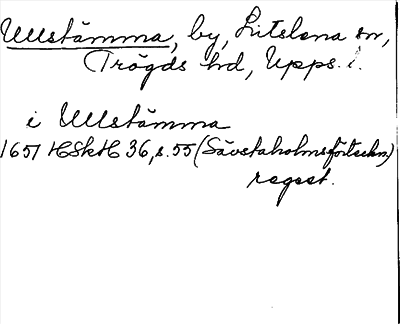 Ullstämma, by, Litslena sn,
Trögds hd, Upps. l.
i Ullstämma
1651 HSkH 36, s. 55 (Sävstaholmsförteckn.)
regest.